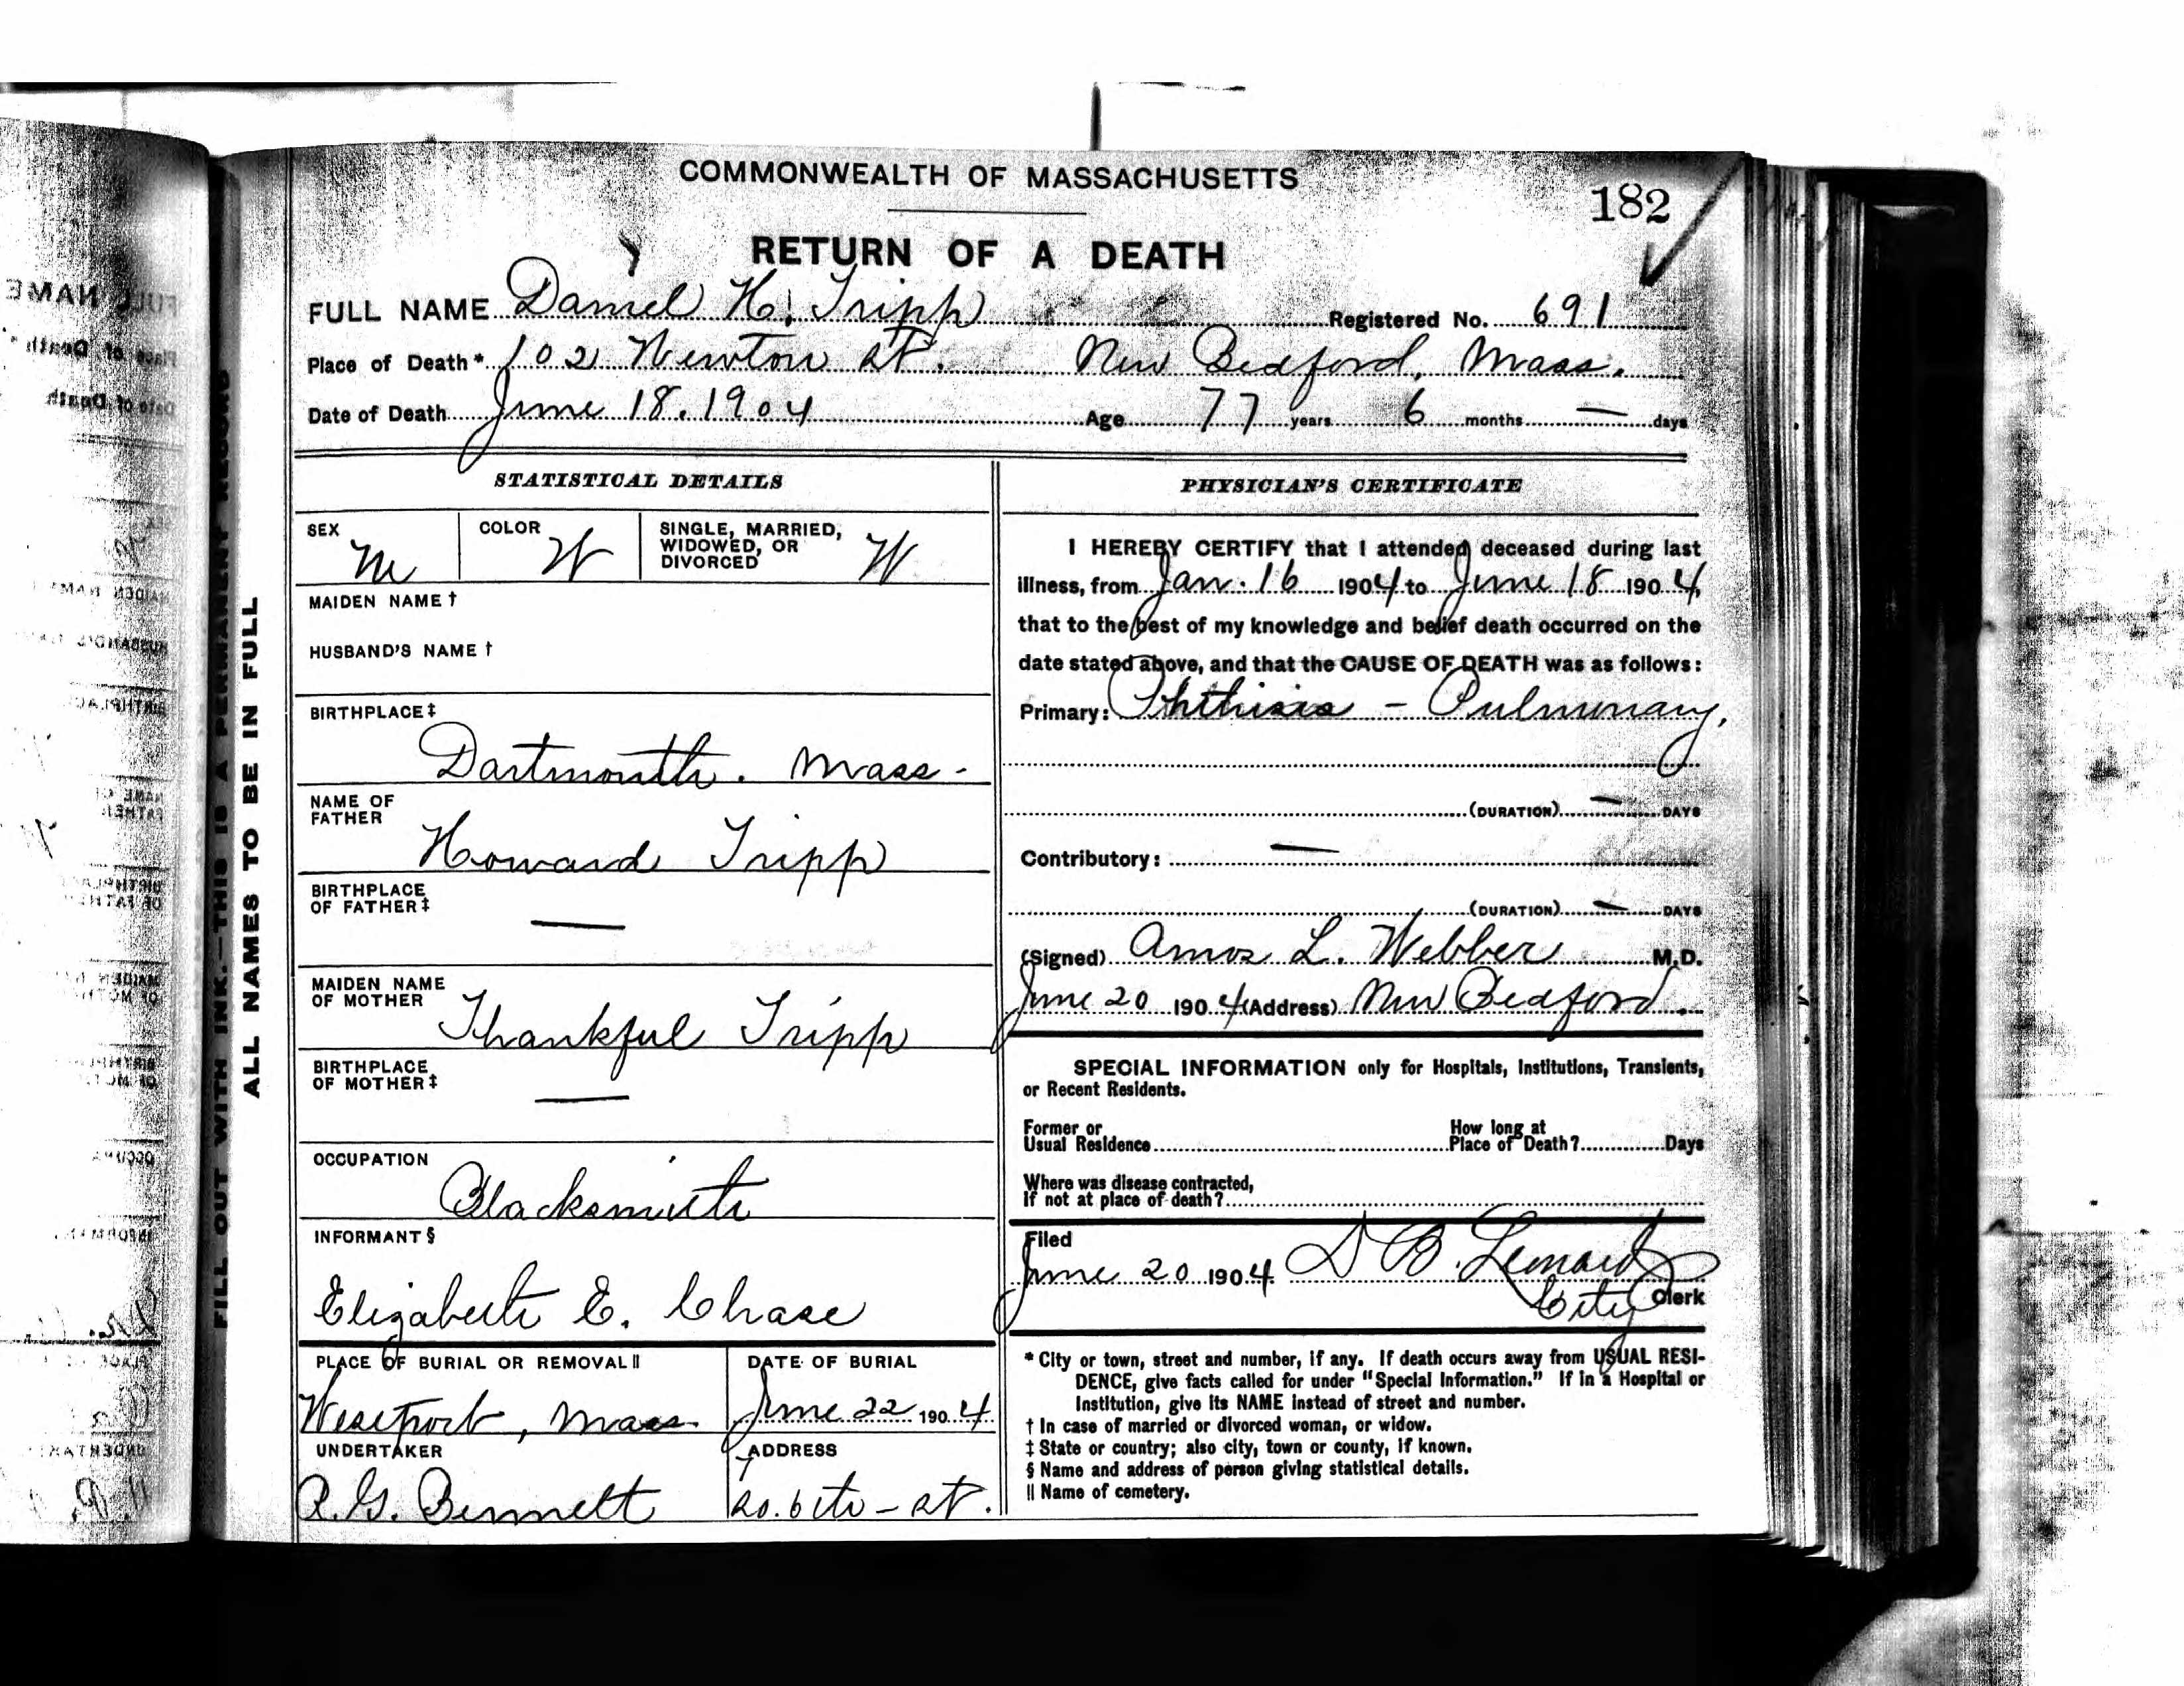 COMMONWEALTH OF MASSACHUSETTS
182
RETURN OF A DEATH
FULL NAME Daniel H. Tripp Registered No. 691
Place of Death* 102 Newton St. New Bedford, Mass.
Date of Death June 18. 1904 Age 77 years 6 months — days
STATISTICAL DETAILS
SEX M COLOR W SINGLE, MARRIED, WIDOWED, OR DIVORCED W
MAIDEN NAME †
HUSBAND'S NAME †
BIRTHPLACE ‡
Dartmouth. Mass.
NAME OF
FATHER
Howard Tripp
BIRTHPLACE
OF FATHER ‡
—
MAIDEN NAME
OF MOTHER
Thankful Tripp
BIRTHPLACE
OF MOTHER ‡
—
OCCUPATION
Blacksmith
INFORMANT §
Elizabeth E. Chase
PLACE OF BURIAL OR REMOVAL || DATE OF BURIAL
Westport, Mass. June 22 1904
UNDERTAKER ADDRESS
A. G. Bennett st.
PHYSICIAN'S CERTIFICATE
I HEREBY CERTIFY that I attended deceased during last
illness, from Jan. 16 1904 to June 18 1904
that to the best of my knowledge and belief death occurred on the
date stated above, and that the CAUSE OF DEATH was as follows:
Primary: Phthisis - Pulmonary.
(DURATION) — DAYS
Contributory: —
(DURATION) — DAYS
(Signed) Amos L. Webber M.D.
June 20 1904 (Address) New Bedford.
SPECIAL INFORMATION only for Hospitals, Institutions, Transients,
or Recent Residents.
Former or
Usual Residence
How long at
Place of Death? Days
Where was disease contracted,
if not at place of death?
Filed
June 20 1904 D B. Leonard
City Clerk
* City or town, street and number, if any. If death occurs away from USUAL RESI-
DENCE, give facts called for under "Special Information." If in a Hospital or
Institution, give its NAME instead of street and number.
† In case of married or divorced woman, or widow.
‡ State or country; also city, town or county, if known.
§ Name and address of person giving statistical details.
|| Name of cemetery.
FILL OUT WITH INK.—THIS IS A PERMANENT RECORD
ALL NAMES TO BE IN FULL